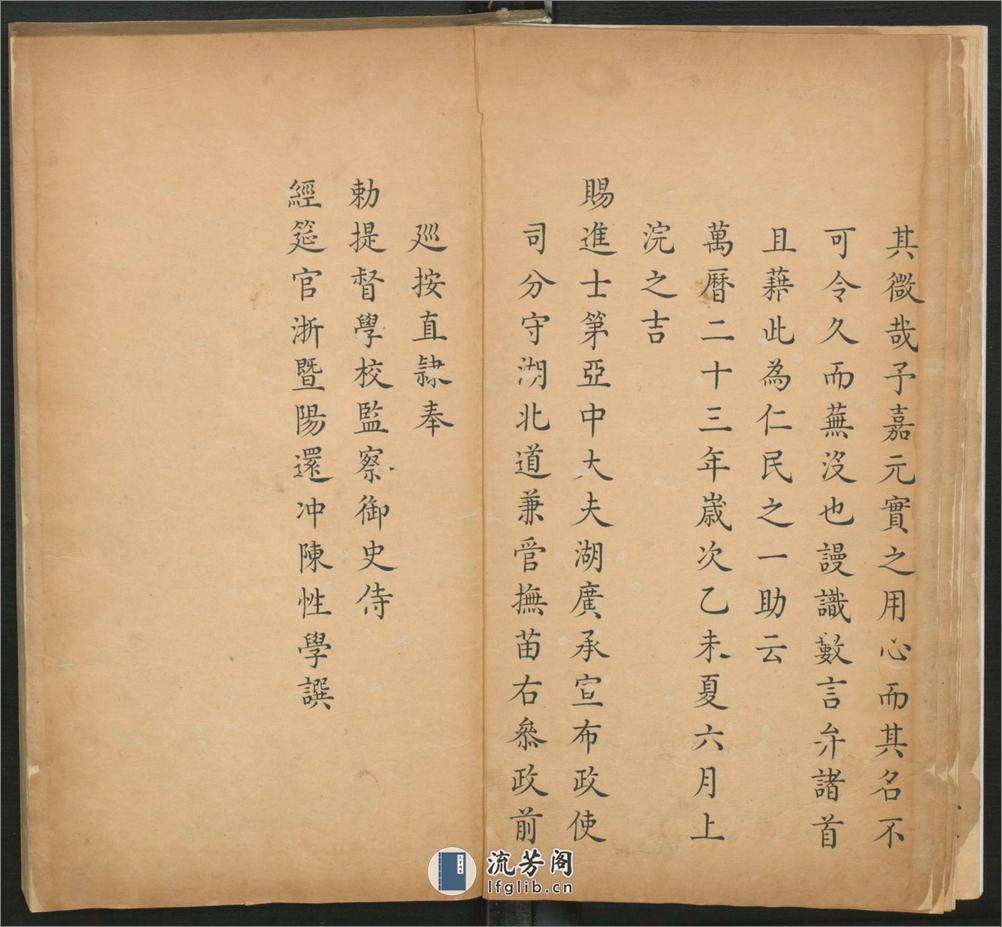 其微哉予嘉元實之用心而其名不
可令久而蕪沒也謾識數言弁諸首
且藉此為仁民之一助云
萬曆二十三年歲次乙未夏六月上
浣之吉
賜進士第亞中大夫湖廣承宣布政使
司分守湖北道兼管撫苗右叅政前
廵按直隷奉
勅提督學校監察御史侍
經筵官浙暨陽還冲陳性學譔
流芳阁
lfglib.cn